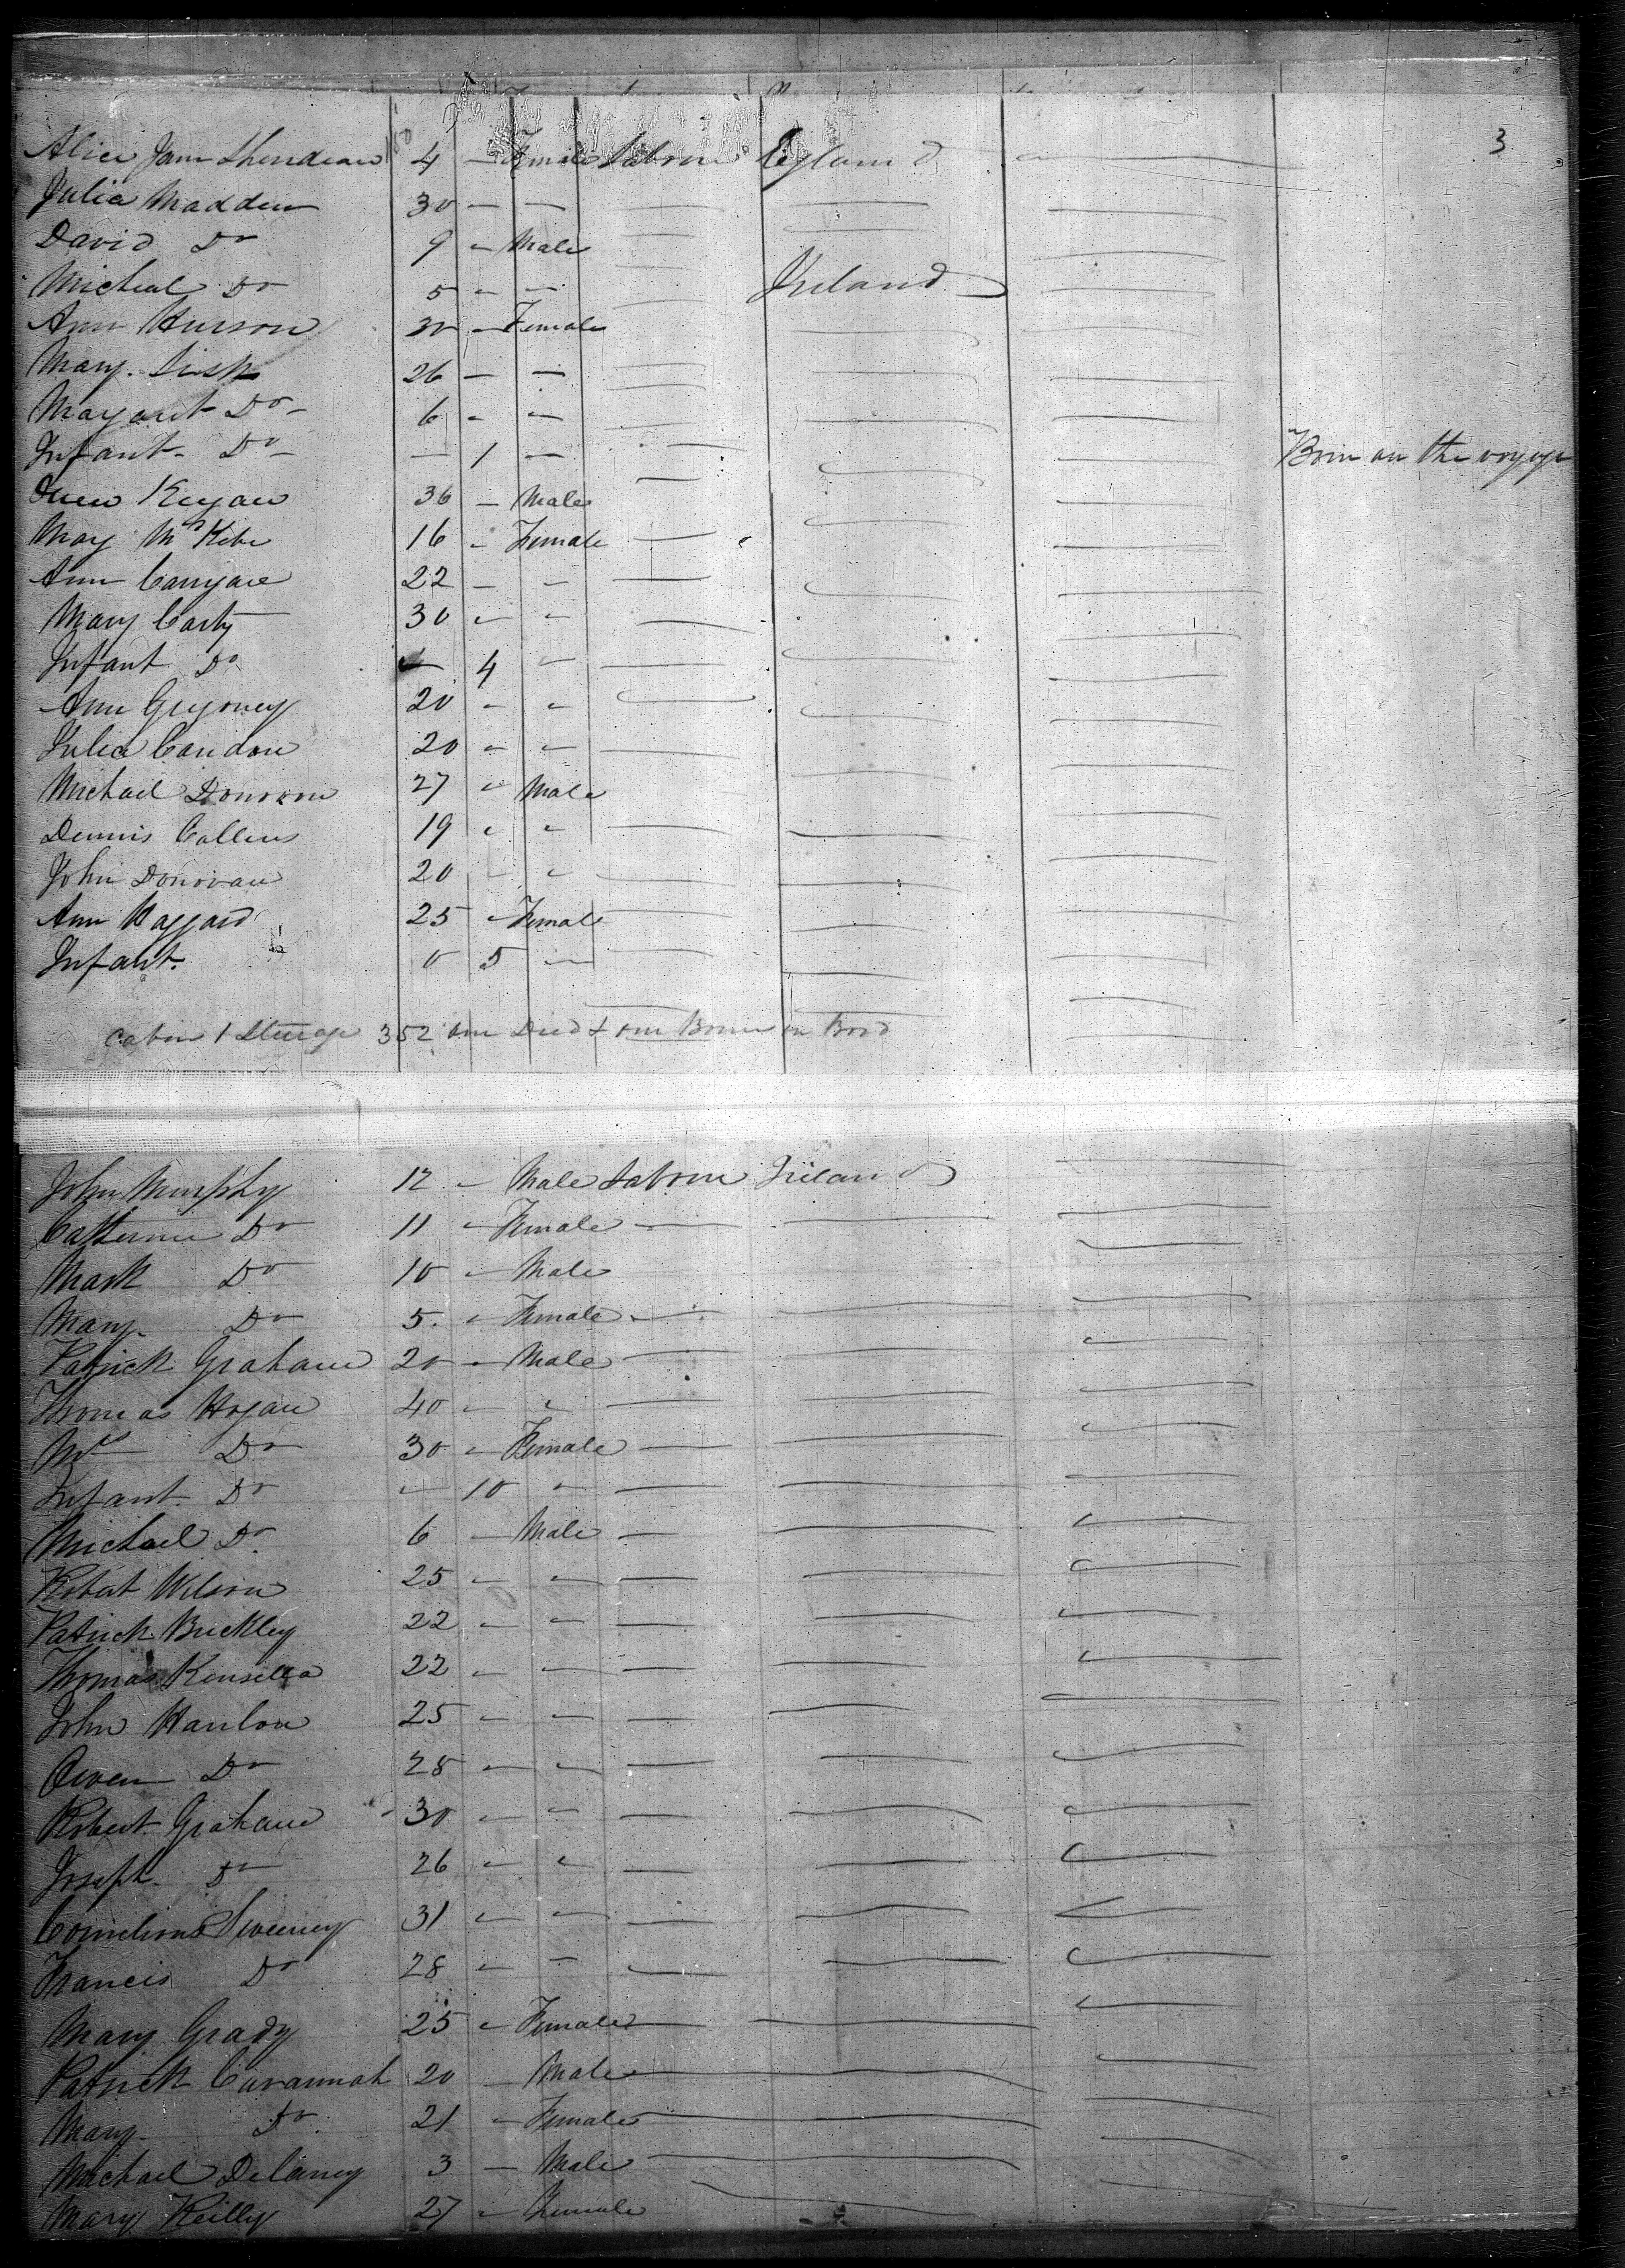 3
Alice Jane 4 – Female Labrour England
Julia Madden 30 – –
David Do 9 – Male
Micheal Do 5 – – Ireland
Ann Hurson 30 – Female
Mary Sisk 26 – –
Margaret Do 6 – –
Infant Do – 1 – Born on the voyage
36 – Male
May McKebe 16 – Female
Ann 22 – –
Mary Carty 30 – –
Infant Do – 4 –
Ann 20 – –
Julia Candon 20 – –
Michael Donovon 27 – Male
Dennis Collins 19 – –
John Donovan 20 – –
Ann Haggard 25 – Female
Infant 0 5 –
Cabin 1 Steerage 352 one Died & one Born on Bord
John Murphy 12 – Male Labrour Ireland
Catterine Do 11 – Female
Mark Do 10 – Male
Mary Do 5 – Female
Patrick Graham 20 – Male
Thomas Hogan 40 – –
Mrs Do 30 – Female
Infant Do – 10 –
Michael Do 6 – Male
Robert Wilson 25 – –
Patrick Buckley 22 – –
Thomas Kensella 22 – –
John Hanlon 25 – –
Owen Do 28 – –
Robert Graham 30 – –
Joseph Do 26 – –
Cornelious Sweeney 31 – –
Francis Do 28 – –
Mary Grady 25 – Female
Patrick Cavannah 20 – Male
Mary Do 21 – Female
Michael Delaney 3 – Male
Mary Reilly 27 – Female